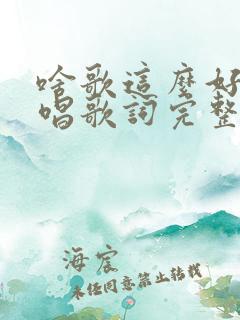 啥歌這麼好
唱歌詞完整
海宸
未經同意禁止轉載